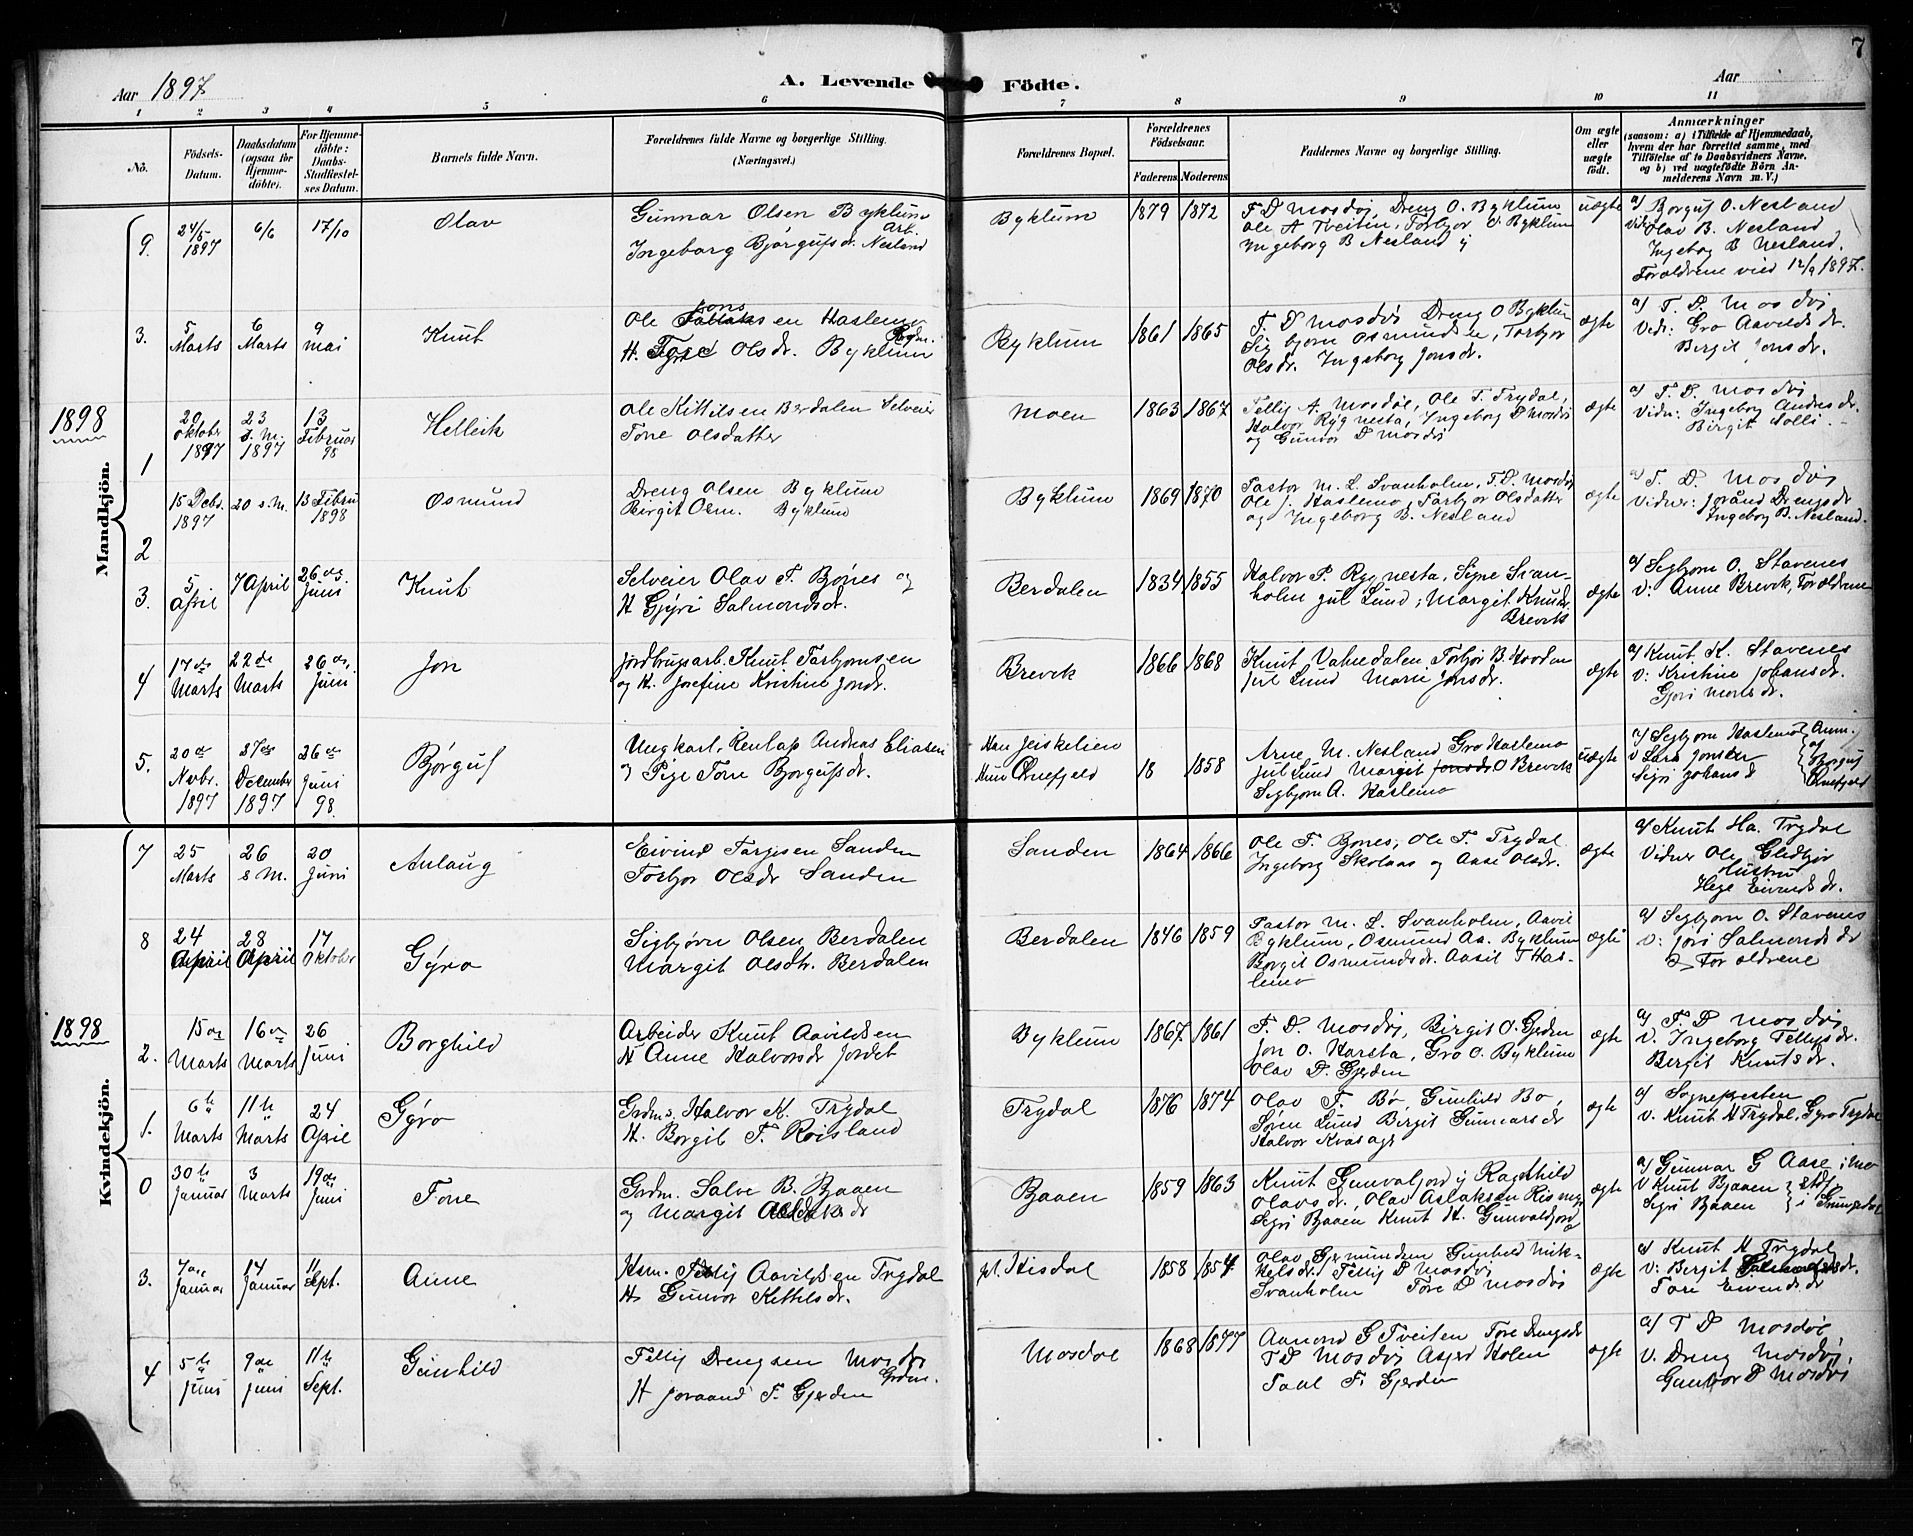 7
Aar 1897
A. Levende
Födte.
Aar
1 2 3 4 5 6 7 8 9 10 11
No.
Födsels-Datum.
Daabsdatum (ogsaa for Hjemmedöbte).
For Hjemmedöbte: Daabs-Stadfæstelses Datum.
Barnets fulde Navn.
Forældrenes fulde Navne og borgerlige Stilling.
(Næringsvei.)
Forældrenes Bopæl.
Forældrenes Födselsaar.
Faderens. Moderens.
Faddernes Navne og borgerlige Stilling.
Om ægte eller uægte födt.
Anmærkninger
(saasom: a) i Tilfælde af Hjemmedaab, hvem der har forrettet samme, med Tilföielse af to Daabsvidners Navne, og b) ved uægtefödte Börn Anmelderens Navn m. V.)
Mandkjön.
9. 24/5 1897 6/6 17/10 Olav
Gunnar Olsen Byklum Arb.
Ingeborg Bjørgufsdr. Nesland
Byklum 1879 1872
T D Mosdøj, Dreng O. Byklum
Ole A Tveiten, Torbjor O. Byklum
Ingeborg B Nesland
uægte
a) Borguf O. Nesland
Olav B. Nesland
Ingebog B Nesland.
Forældrene viet 12/9 1897.
3. 5 Marts 6 Marts 9 Mai Knut
Ole Jonsen Haslemo
H. Tone Olsdr. Byklum
Byklum 1861 1865
T. D Mosdøj Dreng O Byklum
Sigbjørn Osmundsen, Torbjor
Olsdr. Ingeborg Jonsdr.
ægte
a) T. D. Mosdøj
Vidr: Gro Aavildsdr.
Birgit Jonsdr.
1898
1 20 Oktober 1897 23 s. M. 1897 13 Februar 98 Helleik
Ole Kittilsen Berdalen Selveier
Tone Olsdatter
Moen 1863 1867
Tellij A. Mosdøl, Ole T. Trydal,
Halvor Rygnesta, Ingeborg D Mosdøj
og Gunvor D Mosdøj
ægte
a) T. D. Mosdøj
Vidn: Ingeborg Andresdr.
Birgit Solli.
2 15 Decbr. 1897 20 s. M. 13 Febru 1898 Osmund
Dreng Olsen Byklum
Birgit Osm. Byklum
Byklum 1869 1870
Pastor M. L. Svanholm, T. D. Mosdøj
Ole J. Haslemo, Torbjor Olsdatter
og Ingeborg B. Nesland
ægte
a) T. D. Mosdøj
Vidner: Jorånd Drengsdr
Ingeborg B. Nesland.
3. 5 April 7 April 26de Juni Knut
Selveier Olav T. Bjones og
H Gjÿri Salmondsdr.
Berdalen 1834 1855
Halvor P. Rygnesta, Signe Svanholm
Jul Lund, Margit Knudsdr.
Brevik
ægte
a) Sigbjørn O. Stavenes
v: Anne Brevik, Forældrene
4 17de Marts 22de Marts 26de Juni Jon
Jordbrugsarb. Knut Torbjornsen
og H. Josefine Kristine Jondr.
Brevik 1866 1868
Knut Vatnedalen, Torbjor B. Hovden
Jul Lund Marie Jonsdr.
ægte
a) Knut K. Stavenes
v: Kristine Johansdr.
5. 20de Novbr. 1897 27de December 1897 26de Juni 98. Bjørguf
Ungkarl, Renlap Andreas Eliasen
og Pige Tone Bjorgufsdr.
18 1858
Arne M. Nesland Gro Haslemo
Jul Lund Margit O Brevik
Sigbjorn A. Haslemo
uægte
a) Sigbjorn Haslemo
Anm. af Bjorguf
Kvindekjön.
7 25 Marts 26 s M. 20 Juni Anlaug
Eivind Targjesen Sanden
Torbjor Olsdr Sanden
Sanden 1864 1866
Ole T. Bjones, Ole T. Trydal
Ingeborg Skolaas og Aase Olsdr.
ægte
a) Knut Ha. Trydal
Vidner Ole
Hustru
Hege Eivindsdr.
8 24 April 28 April 17 Oktober Gÿro
Sigbjørn Olsen Berdalen
Margit Olsdtr. Berdalen
Berdalen 1846 1859
Pastor M. L. Svanholm, Aavil
Byklum, Osmund Aa. Byklum
Borgit Osmundsdr. Aasil T Haslemo
ægte
a) Sigbjorn O. Stavenes
v: Jori Salmondsdr
Forældrene
1898
2. 15de Marts 16de Marts 26 Juni Borghild
Arbeider Knut Aavildsen
H Anne Halvorsdr Jordet
Byklum 1867 1861
T. D. Mosdøj, Birgit O. Gjerden
Jon O. Harsta, Gro O. Byklum
Olav D. Gjerden
ægte
a) T. D Mosdøj
v. Ingeborg Tellefsdr.
Bergit Knutsdr.
1. 6te Marts 11te Marts 24 April Gÿro
Grdms. Halvor K. Trydal
H. Borgit T. Roisland
Trydal 1876 1874
Olav T. Bø, Gunhild Bø,
Søren Lund Birgit Gunnarsdr
ægte
a) Sognepresten
v. Knut H Trydal, Gyro Trydal
0 30te Januar 3 Marts 19de Juni Tone
Grdm. Salve B. Bjaaen
og Margit Aslaksdr
Bjaaen 1859 1863
Knut Gunvaljord Ragnhild
Olavsdr, Olav Aslaksen
Sigri Bjaaen Knut H. Gunvaldjord
ægte
a) Gunnar G Aase
v Knut Bjaaen
Sigri Bjaaen
3. 7de Januar 14 Januar 11 Sept. Anne
Hsm. Tellij Aavildsen Trydal
H. Gunvor Kittilsdr.
pl. Hisdal 1858 1854
Olav Gjermundsen Gunhild Mikkelsdr.
Tellij D Mosdøj
Svanholm Tore D Mosdøj
ægte
a) Knut H Trydal
v: Bergit
Tore Eivindsdr
4 5te Juni 9de Juni 11te Sept. Gunhild
Tellij Drengsen Mosdøj
Grdm.
H Joraand T. Gjerden
Mosdøl 1868 1877
Aamond G Tveiten Tore Drengsdr
T D Mosdøj Asjer Holen
Paal T. Gjerden
ægte
a) T D Mosdøl
v. Dreng Mosdøj,
Gunvor D Mosdøj